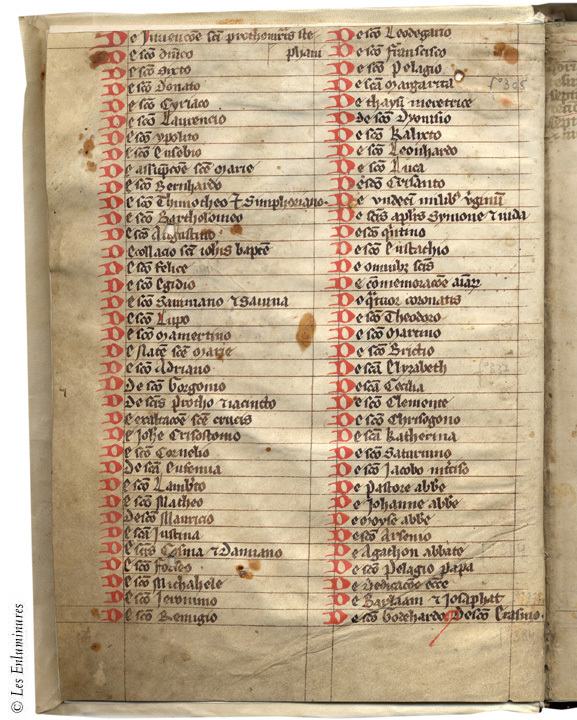 De Inuencōe scī prothomr̄is ste
phani
De scō Dn̄ico
De scō Sixto
De scō Donato
De scō Cyriaco
De scō Laurencio
De scō ypolito
De scō Eusebio
De assūpcōe scē Marie
De scō Bernhardo
De scō Thimotheo & Simphoriano.
De scō Bartholomeo
De scō Augustino
Decollacio scī ioh̄is baptē
De scō felice
De scō Egidio
De scō Sauiniano & Sauina
De scō Lupo
De scō Mamertino
De natīē scē Marie
De scō Adriano
De scō Gorgonio
De scīs Protho & iacincto
De exaltacōe scē crucis
De Joh̄e Crisostomo
De scō Cornelio
De scā Eufemia
De scō Lamb̄to
De scō Matheo
De scō Mauricio
De scā Iustina
De scīs Cosma & Damiano
De scō forseo
De scō Michahele
De scō Ieronimo
De scō Remigio
De scō Leodegario
De scō francisco
De scō Pelagio
De scā Margarita
De thaysi meretrice
De scō Dyonisio
De scō Kalixto
De scō Leonhardo
De scō Luca
De scō Crisanto
De vndecī milib ꝟginū
De scīs apl̄is Symone & iuda
De scō q̄ntino
De scō Eustachio
De omnibꝫ scīs
De cōmemoracōe aīaꝝ
De q̄tuor coronatis
De scō Theodoro
De scō Martino
De scō Brictio
De scā Elyzabeth
De scā Cecilia
De scō Clemente
De scō Chrisogono
De scā Katherina
De scō Saturnino
De scō Jacobo inciso
De Pastore abbē
De Johanne abbē
De Moyse abbē
De scō Arsenio
De Agathon abbate
De scō Pelagio papa
De Dedicacōe ecc̄e
De Barlaam & Josaphat
De scō Godehardo De scō Erasmo.
© Les Enluminures